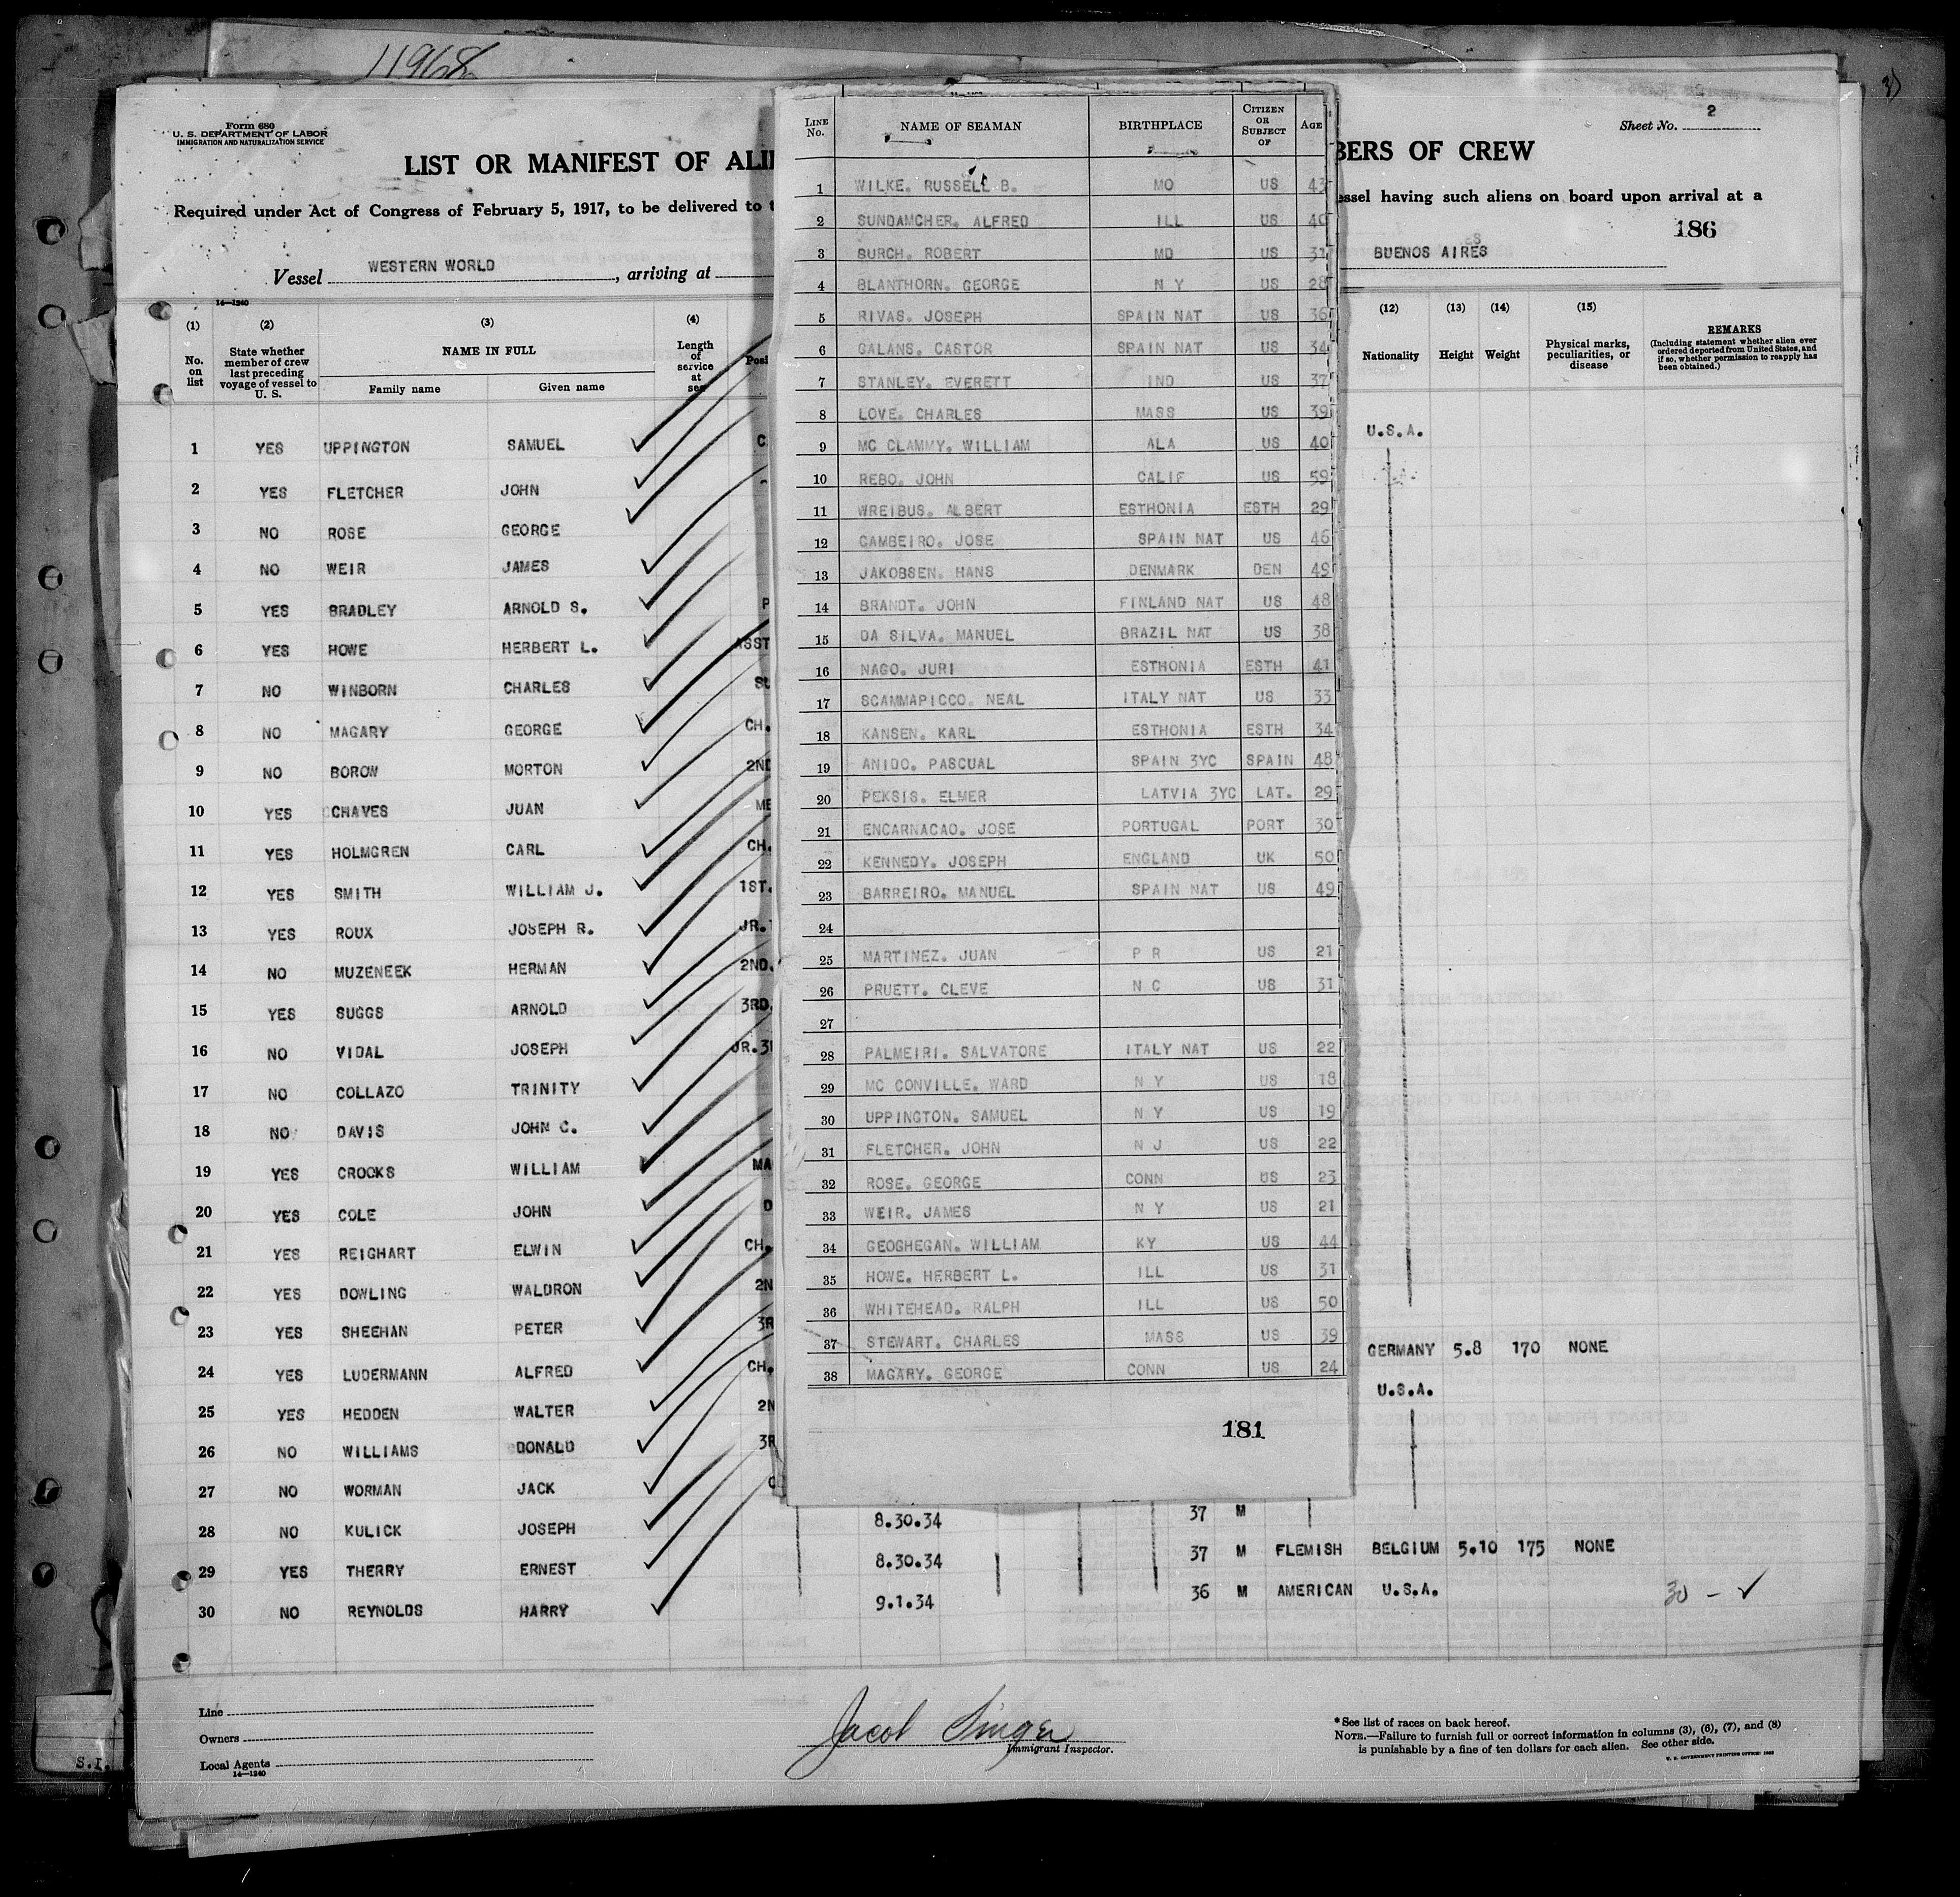 11968
Form 680
U. S. DEPARTMENT OF LABOR
IMMIGRATION AND NATURALIZATION SERVICE
Sheet No. 2
LIST OR MANIFEST OF ALI
BERS OF CREW
Required under Act of Congress of February 5, 1917, to be delivered to
essel having such aliens on board upon arrival at a
186
Vessel WESTERN WORLD , arriving at
BUENOS AIRES
14—1240
(1) (2) (3) (4) (12) (13) (14) (15)
No. on list
State whether member of crew last preceding voyage of vessel to U. S.
NAME IN FULL
Family name Given name
Length of service at sea
Posi
Nationality Height Weight
Physical marks, peculiarities, or disease
REMARKS
(Including statement whether alien ever ordered deported from United States, and if so, whether permission to reapply has been obtained.)
1 YES UPPINGTON SAMUEL C U.S.A.
2 YES FLETCHER JOHN
3 NO ROSE GEORGE
4 NO WEIR JAMES
5 YES BRADLEY ARNOLD S. P
6 YES HOWE HERBERT L. ASST
7 NO WINBORN CHARLES SU
8 NO MAGARY GEORGE CH.
9 NO BOROW MORTON 2ND
10 YES CHAVES JUAN ME
11 YES HOLMGREN CARL CH.
12 YES SMITH WILLIAM J. 1ST.
13 YES ROUX JOSEPH R. JR.
14 NO MUZENEEK HERMAN 2ND.
15 YES SUGGS ARNOLD 3RD.
16 NO VIDAL JOSEPH JR.3
17 NO COLLAZO TRINITY
18 NO DAVIS JOHN C.
19 YES CROOKS WILLIAM MA
20 YES COLE JOHN D
21 YES REIGHART ELWIN CH.
22 YES DOWLING WALDRON 2N
23 YES SHEEHAN PETER 3R
24 YES LUDERMANN ALFRED CH. GERMANY 5.8 170 NONE
25 YES HEDDEN WALTER 2N U.S.A.
26 NO WILLIAMS DONALD 3R
27 NO WORMAN JACK
28 NO KULICK JOSEPH 8.30.34 37 M
29 YES THERRY ERNEST 8.30.34 37 M FLEMISH BELGIUM 5.10 175 NONE
30 NO REYNOLDS HARRY 9.1.34 36 M AMERICAN U.S.A. 30 - ✓
LINE No. NAME OF SEAMAN BIRTHPLACE CITIZEN OR SUBJECT OF AGE
1 WILKE. RUSSELL B. MO US 43
2 SUNDAMCHER. ALFRED ILL US 40
3 BURCH. ROBERT MD US 31
4 BLANTHORN. GEORGE N Y US 28
5 RIVAS. JOSEPH SPAIN NAT US 36
6 GALANS. CASTOR SPAIN NAT US 34
7 STANLEY. EVERETT IND US 37
8 LOVE. CHARLES MASS US 39
9 MC CLAMMY. WILLIAM ALA US 40
10 REBO. JOHN CALIF US 59
11 WREIBUS. ALBERT ESTHONIA ESTH 29
12 CAMBEIRO. JOSE SPAIN NAT US 46
13 JAKOBSEN. HANS DENMARK DEN 49
14 BRANDT. JOHN FINLAND NAT US 48
15 DA SILVA. MANUEL BRAZIL NAT US 38
16 NAGO. JURI ESTHONIA ESTH 41
17 SCAMMAPICCO. NEAL ITALY NAT US 33
18 KANSEN. KARL ESTHONIA ESTH 34
19 ANIDO. PASCUAL SPAIN 3YC SPAIN 48
20 PEKSIS. ELMER LATVIA 3YC LAT. 29
21 ENCARNACAO. JOSE PORTUGAL PORT 30
22 KENNEDY. JOSEPH ENGLAND UK 50
23 BARREIRO. MANUEL SPAIN NAT US 49
24
25 MARTINEZ. JUAN P R US 21
26 PRUETT. CLEVE N C US 31
27
28 PALMEIRI. SALVATORE ITALY NAT US 22
29 MC CONVILLE. WARD N Y US 18
30 UPPINGTON. SAMUEL N Y US 19
31 FLETCHER. JOHN N J US 22
32 ROSE. GEORGE CONN US 23
33 WEIR. JAMES N Y US 21
34 GEOGHEGAN. WILLIAM KY US 44
35 HOWE. HERBERT L. ILL US 31
36 WHITEHEAD. RALPH ILL US 50
37 STEWART. CHARLES MASS US 39
38 MAGARY. GEORGE CONN US 24
181
Line
Owners
Local Agents
14—1240
Jacob Singer
Immigrant Inspector.
*See list of races on back hereof.
NOTE.—Failure to furnish full or correct information in columns (3), (6), (7), and (8)
is punishable by a fine of ten dollars for each alien. See other side.
S.I.